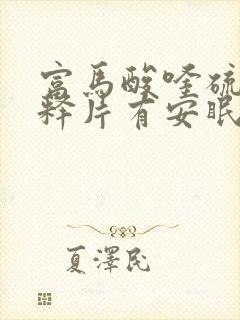 富马酸喹硫
释片有安眠
夏澤民